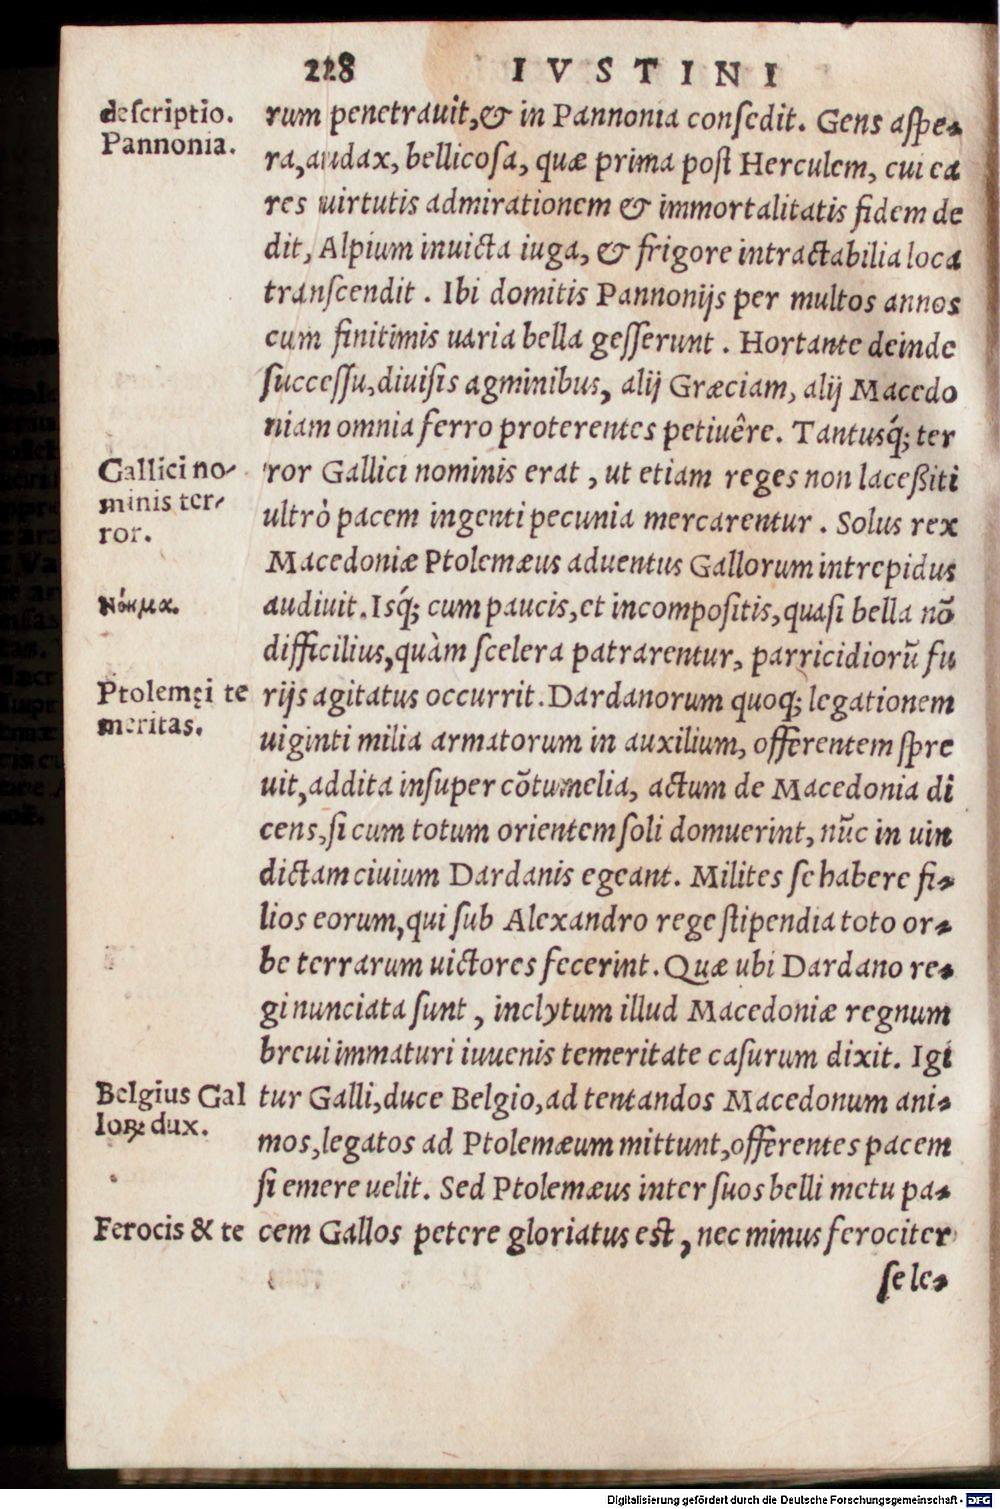 228 IVSTINI
descriptio.
Pannonia.
rum penetrauit,& in Pannonia consedit. Gens aspe-
ra,audax, bellicosa, quæ prima post Herculem, cui ea
res uirtutis admirationem & immortalitatis fidem de
dit, Alpium inuicta iuga, & frigore intractabilia loca
transcendit. Ibi domitis Pannonijs per multos annos
cum finitimis uaria bella gesserunt. Hortante deinde
successu,diuisis agminibus, alij Græciam, alij Macedo
niam omnia ferro proterentes petiuêre. Tantusq́; ter
Gallici no-
minis ter-
ror.
ror Gallici nominis erat, ut etiam reges non laceßiti
ultrò pacem ingenti pecunia mercarentur. Solus rex
Macedoniæ Ptolemæus aduentus Gallorum intrepidus
audiuit. Isq́; cum paucis,et incompositis,quasi bella nõ
difficilius,quàm scelera patrarentur, parricidiorũ fu
Ptolemęi te
meritas.
rijs agitatus occurrit. Dardanorum quoq; legationem
uiginti milia armatorum in auxilium, offerentem spre
uit,addita insuper cõtumelia, actum de Macedonia di
cens,si cum totum orientem soli domuerint, nũc in uin
dictam ciuium Dardanis egeant. Milites se habere fi-
lios eorum,qui sub Alexandro rege stipendia toto or-
be terrarum uictores fecerint. Quæ ubi Dardano re-
gi nunciata sunt, inclytum illud Macedoniæ regnum
breui immaturi iuuenis temeritate casurum dixit. Igi
Belgius Gal
loꝝ dux.
tur Galli,duce Belgio,ad tentandos Macedonum ani-
mos,legatos ad Ptolemæum mittunt,offerentes pacem
si emere uelit. Sed Ptolemæus inter suos belli metu pa-
Ferocis & te
cem Gallos petere gloriatus est, nec minus ferociter
se le-
Digitalisierung gefördert durch die Deutsche Forschungsgemeinschaft - DFG